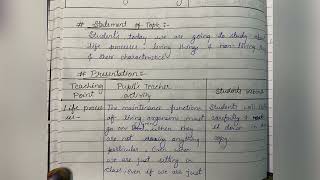 # Statement of Topic :-
Students today we are going to study about
life processes, living things & non-living things
& their characteristics
# Presentation:-
Teaching Point Pupil Teacher activity Students
Life processes :- The maintenance functions Students will
of living organisms must carefully &
go on when they it down in
are not doing anything copy.
particular. Even when
we are just sitting in
class, even if we are just